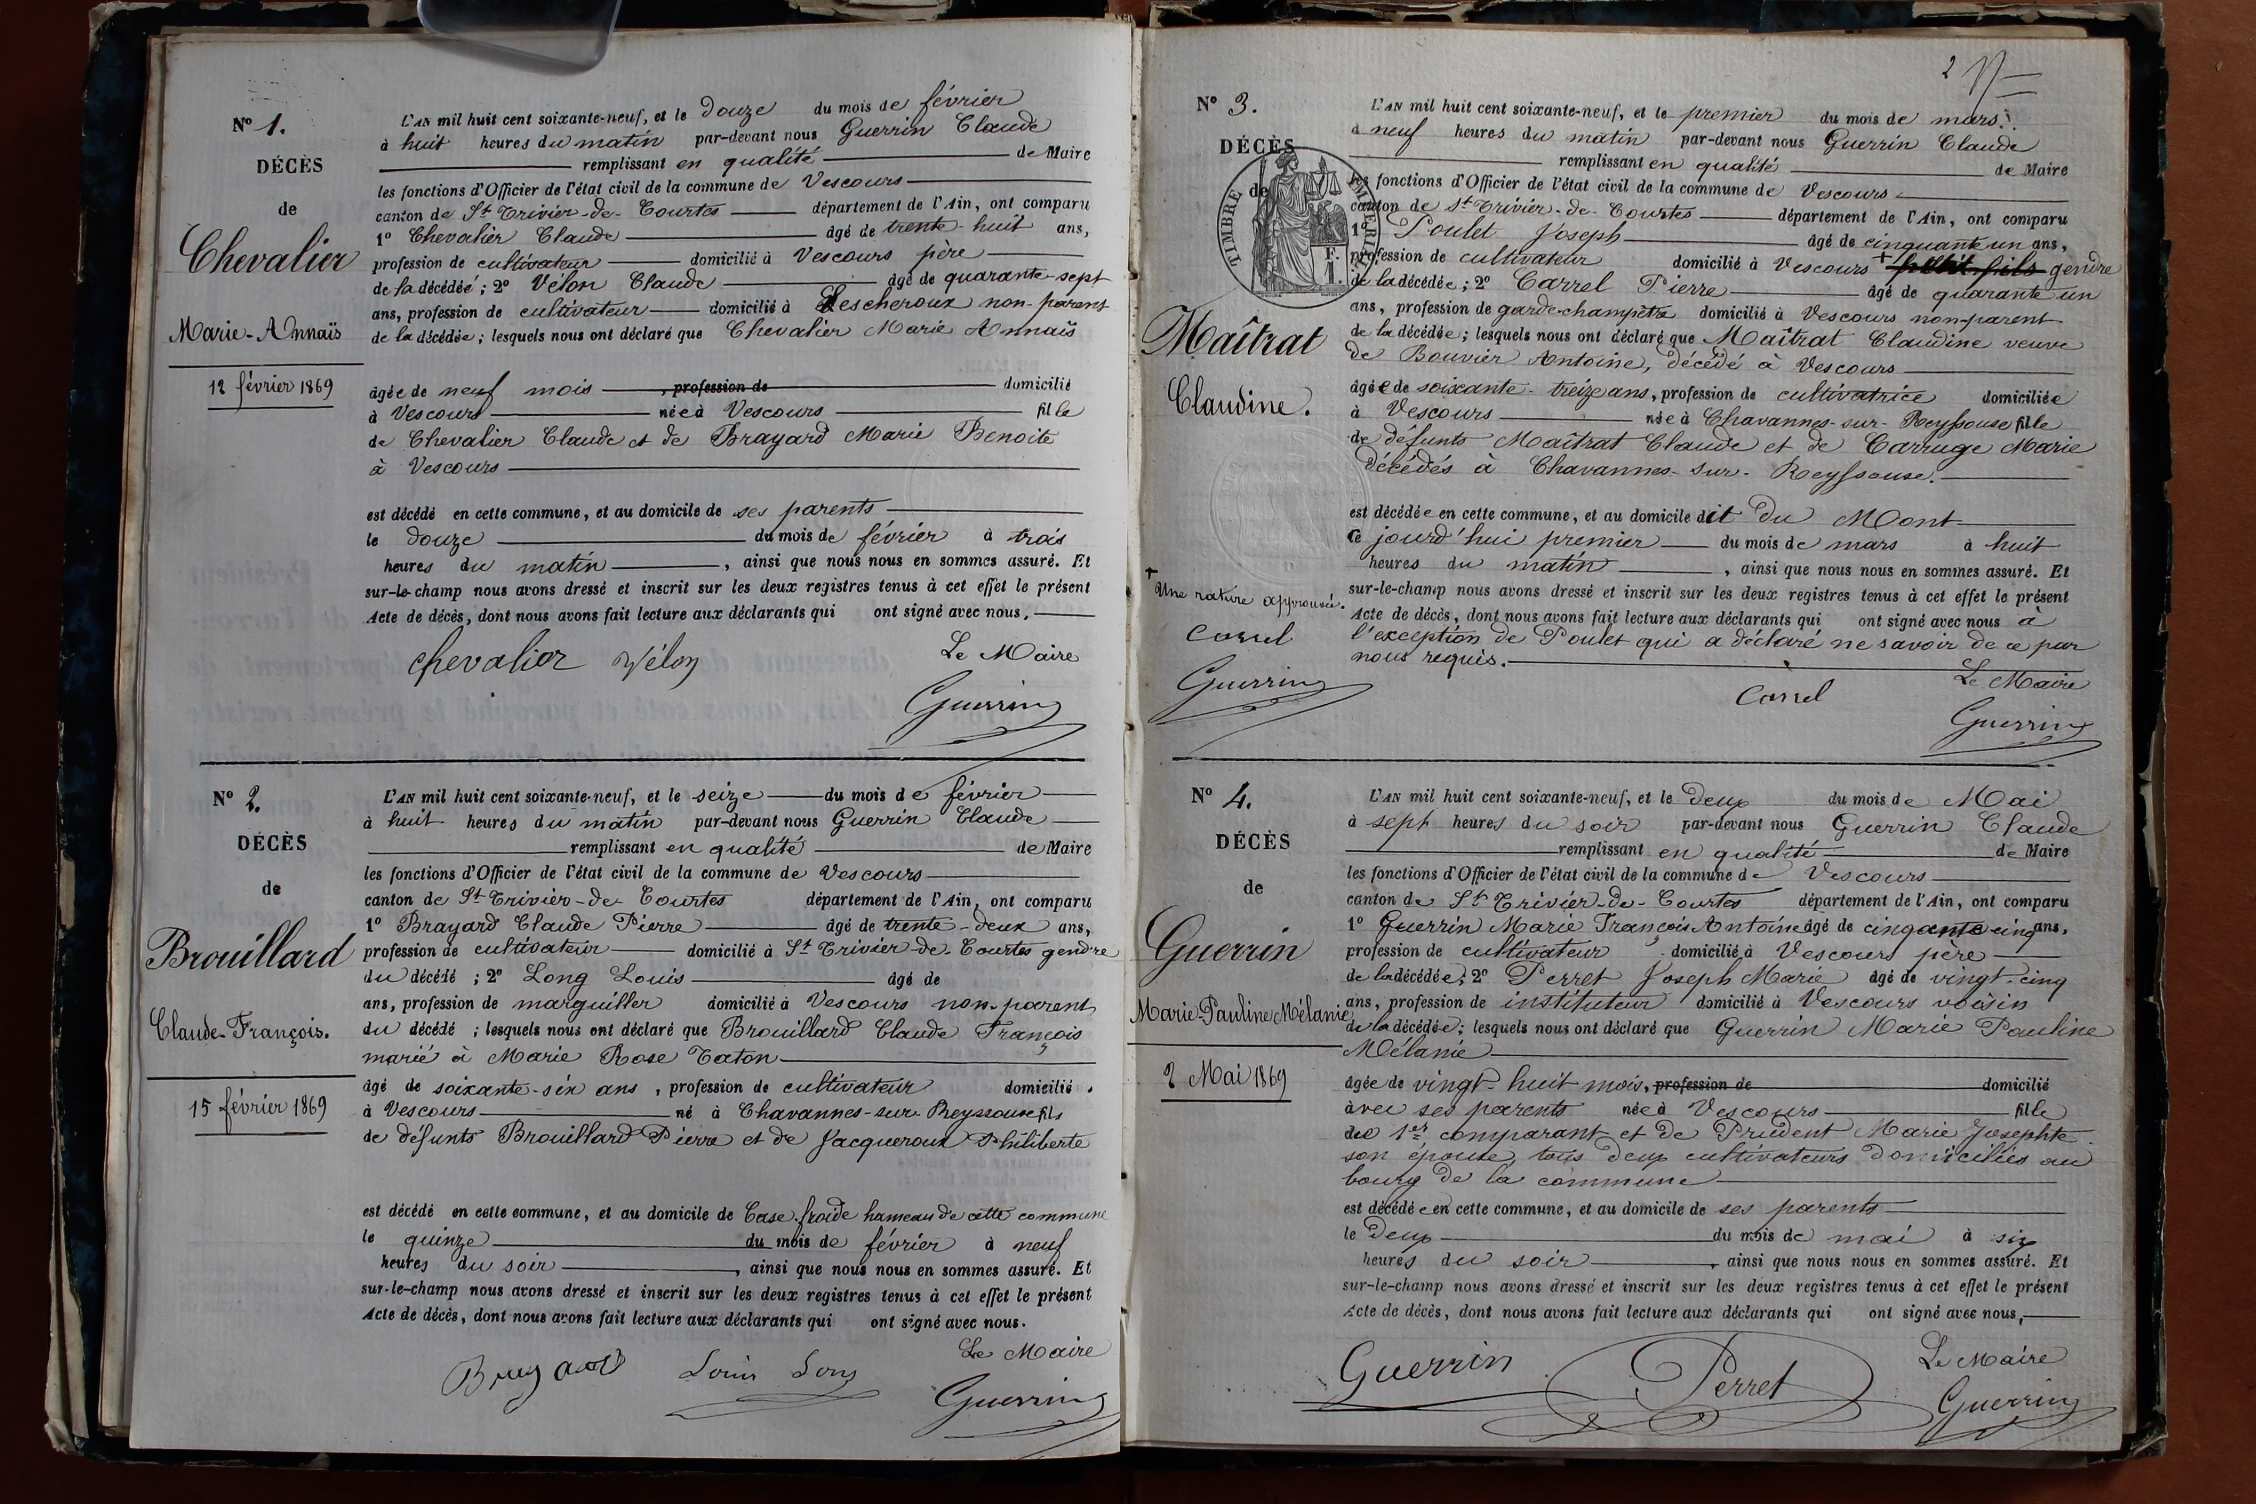 N° 1.
DÉCÈS
de
Chevalier
Marie-Annaïs
12 février 1869
L'AN mil huit cent soixante-neuf, et le douze du mois de février
à huit heures du matin par-devant nous Guerrin Claude
remplissant en qualité de Maire
les fonctions d'Officier de l'état civil de la commune de Vescours
canton de St Trivier-de-Courtes département de l'Ain, ont comparu
1° Chevalier Claude âgé de trente-huit ans,
profession de cultivateur domicilié à Vescours père
de la décédée ; 2° Vélon Claude âgé de quarante-sept
ans, profession de cultivateur domicilié à Lescheroux non-parent
de la décédée ; lesquels nous ont déclaré que Chevalier Marie Annaïs
âgée de neuf mois , profession de domicilié
à Vescours née à Vescours fille
de Chevalier Claude et de Brayard Marie Benoite
à Vescours
est décédé en cette commune, et au domicile de ses parents
le douze du mois de février à trois
heures du matin , ainsi que nous nous en sommes assuré. Et
sur-le-champ nous avons dressé et inscrit sur les deux registres tenus à cet effet le présent
Acte de décès, dont nous avons fait lecture aux déclarants qui ont signé avec nous.
chevalier Vélon Le Maire
Guerrin
N° 2.
DÉCÈS
de
Brouillard
Claude-François.
15 février 1869
L'AN mil huit cent soixante-neuf, et le seize du mois de février
à huit heures du matin par-devant nous Guerrin Claude
remplissant en qualité de Maire
les fonctions d'Officier de l'état civil de la commune de Vescours
canton de St Trivier-de-Courtes département de l'Ain, ont comparu
1° Brayard Claude Pierre âgé de trente-deux ans,
profession de cultivateur domicilié à St Trivier-de-Courtes gendre
du décédé ; 2° Long Louis âgé de
ans, profession de marguiller domicilié à Vescours non-parent
du décédé ; lesquels nous ont déclaré que Brouillard Claude François
marié à Marie Rose Taton
âgé de soixante-six ans , profession de cultivateur domicilié
à Vescours né à Chavannes-sur-Reyssouze fils
de défunts Brouillard Pierre et de Jacqueroux Philiberte
est décédé en cette commune, et au domicile de Case-froide hameau de cette commune
le quinze du mois de février à neuf
heures du soir , ainsi que nous nous en sommes assuré. Et
sur-le-champ nous avons dressé et inscrit sur les deux registres tenus à cet effet le présent
Acte de décès, dont nous avons fait lecture aux déclarants qui ont signé avec nous.
Le Maire
Brayard Louis Long
Guerrin
2
N° 3.
DÉCÈS
de
TIMBRE IMPÉRIAL
F.
1.
Maîtrat
Claudine.
L'AN mil huit cent soixante-neuf, et le premier du mois de mars
à neuf heures du matin par-devant nous Guerrin Claude
remplissant en qualité de Maire
les fonctions d'Officier de l'état civil de la commune de Vescours
canton de St Trivier-de-Courtes département de l'Ain, ont comparu
1° Poulet Joseph âgé de cinquante un ans,
profession de cultivateur domicilié à Vescours + petit-fils gendre
de la décédée ; 2° Carrel Pierre âgé de quarante un
ans, profession de garde-champêtre domicilié à Vescours non-parent
de la décédée ; lesquels nous ont déclaré que Maîtrat Claudine veuve
de Bouvier Antoine, décédé à Vescours
âgée de soixante-treize ans, profession de cultivatrice domiciliée
à Vescours née à Chavannes-sur-Reyssouse fille
de défunts Maîtrat Claude et de Carruge Marie
décédés à Chavannes-sur-Reyssouse.
est décédée en cette commune, et au domicile dit du Mont
Ce jourd'hui premier du mois de mars à huit
heures du matin , ainsi que nous nous en sommes assuré. Et
sur-le-champ nous avons dressé et inscrit sur les deux registres tenus à cet effet le présent
Acte de décès, dont nous avons fait lecture aux déclarants qui ont signé avec nous à
l'exception de Poulet qui a déclaré ne savoir de ce par
nous requis.
+ Une rature approuvée.
Carrel
Guerrin
Le Maire
Carrel
Guerrin
N° 4.
DÉCÈS
de
Guerrin
Marie Pauline Mélanie
2 Mai 1869
L'AN mil huit cent soixante-neuf, et le deux du mois de Mai
à sept heures du soir par-devant nous Guerrin Claude
remplissant en qualité de Maire
les fonctions d'Officier de l'état civil de la commune de Vescours
canton de St Trivier-de-Courtes département de l'Ain, ont comparu
1° Guerrin Marie François Antoine âgé de cinquante cinq ans,
profession de cultivateur domicilié à Vescours père
de la décédée ; 2° Perret Joseph Marie âgé de vingt-cinq
ans, profession de instituteur domicilié à Vescours voisin
de la décédée ; lesquels nous ont déclaré que Guerrin Marie Pauline
Mélanie
âgée de vingt-huit mois, profession de domicilié
avec ses parents née à Vescours fille
du 1er comparant et de Prudent Marie Josephte
son épouse, tous deux cultivateurs domiciliés au
bourg de la commune
est décédée en cette commune, et au domicile de ses parents
le deux du mois de mai à six
heures du soir , ainsi que nous nous en sommes assuré. Et
sur-le-champ nous avons dressé et inscrit sur les deux registres tenus à cet effet le présent
Acte de décès, dont nous avons fait lecture aux déclarants qui ont signé avec nous,
Le Maire
Guerrin Perret Guerrin